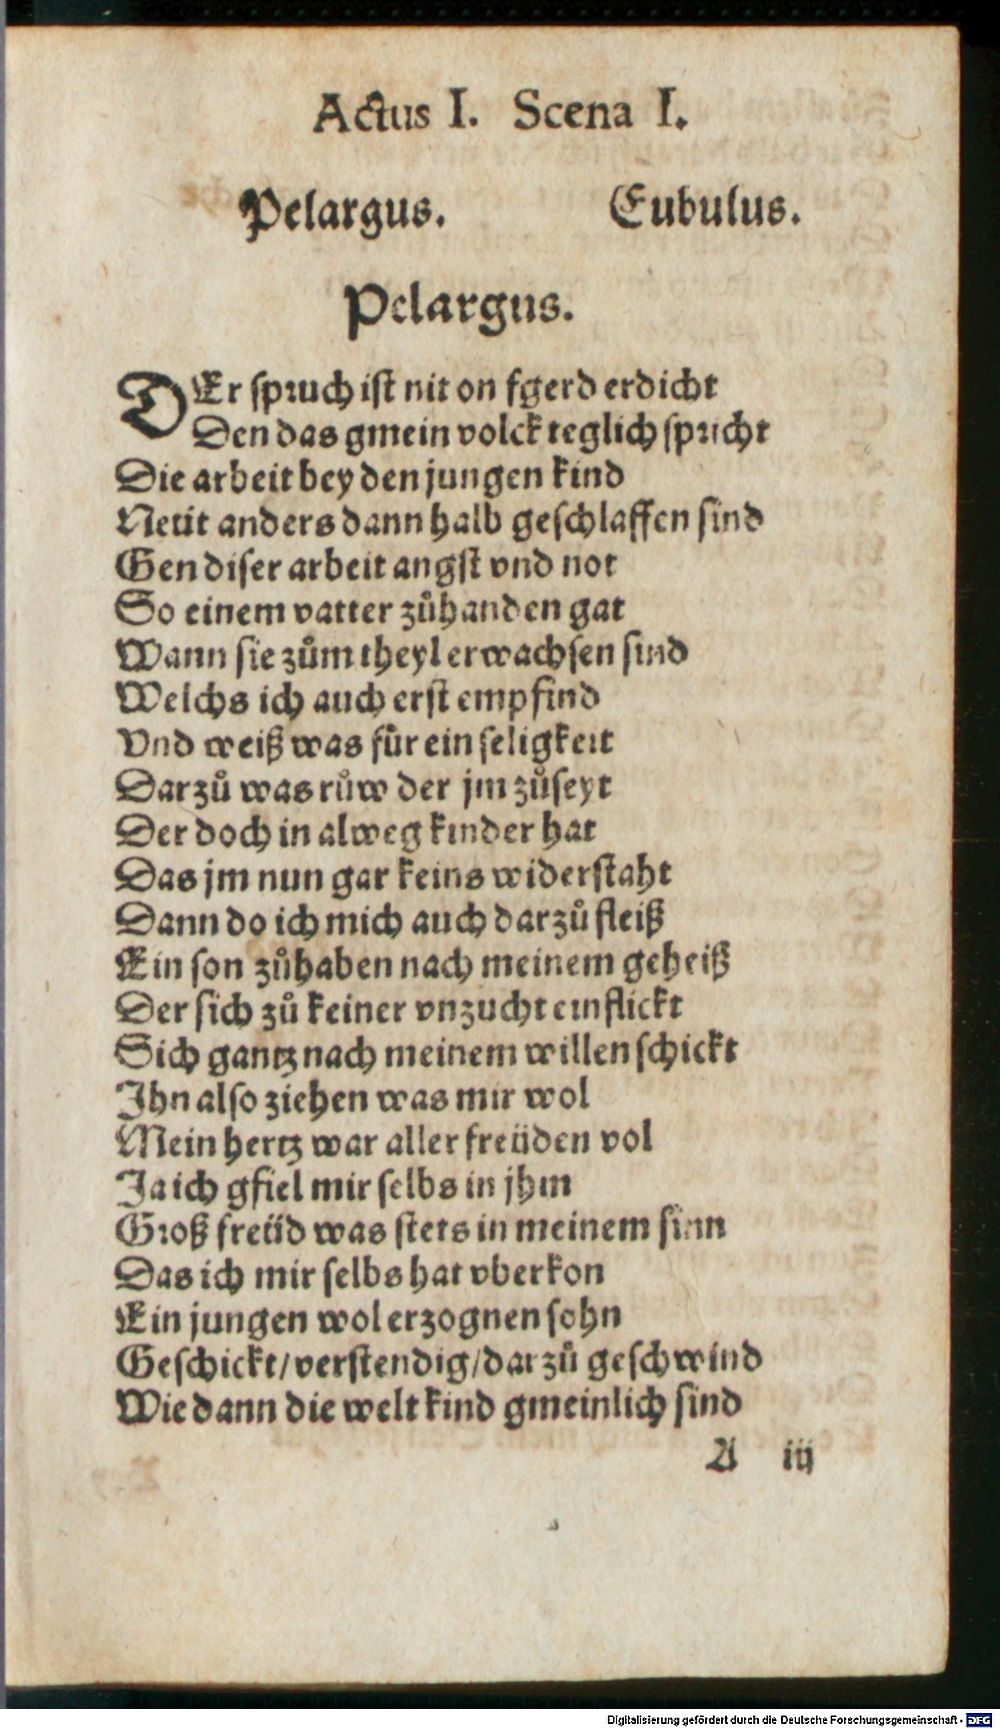 Actus I. Scena I.
Pelargus. Eubulus.
Pelargus.
DEr spruch ist nit on fgerd erdicht
Den das gmein volck teglich spricht
Die arbeit bey den jungen kind
Neüt anders dann halb geschlaffen sind
Gen diser arbeit angst vnd not
So einem vatter zůhanden gat
Wann sie zům theyl erwachsen sind
Welchs ich auch erst empfind
Vnd weiß was für ein seligkeit
Darzů was růw der jm zůseyt
Der doch in alweg kinder hat
Das jm nun gar keins widerstaht
Dann do ich mich auch darzů fleiß
Ein son zůhaben nach meinem geheiß
Der sich zů keiner vnzucht einflickt
Sich gantz nach meinem willen schickt
Ihn also ziehen was mir wol
Mein hertz war aller freüden vol
Ja ich gfiel mir selbs in jhm
Groß freüd was stets in meinem sinn
Das ich mir selbs hat vberkon
Ein jungen wol erzognen sohn
Geschickt/verstendig/darzů geschwind
Wie dann die welt kind gmeinlich sind
A iij
Digitalisierung gefördert durch die Deutsche Forschungsgemeinschaft - DFG